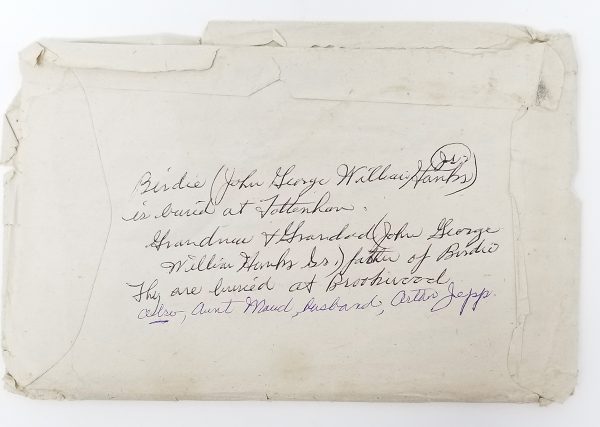 Birdie (John George William Hanks Jr.)
is buried at Tottenham.
Grandma & Grandad (John George
William Hanks Sr.) father of Birdie
They are buried at Brookwood
also, Aunt Maud, husband, Arthur Jepp.